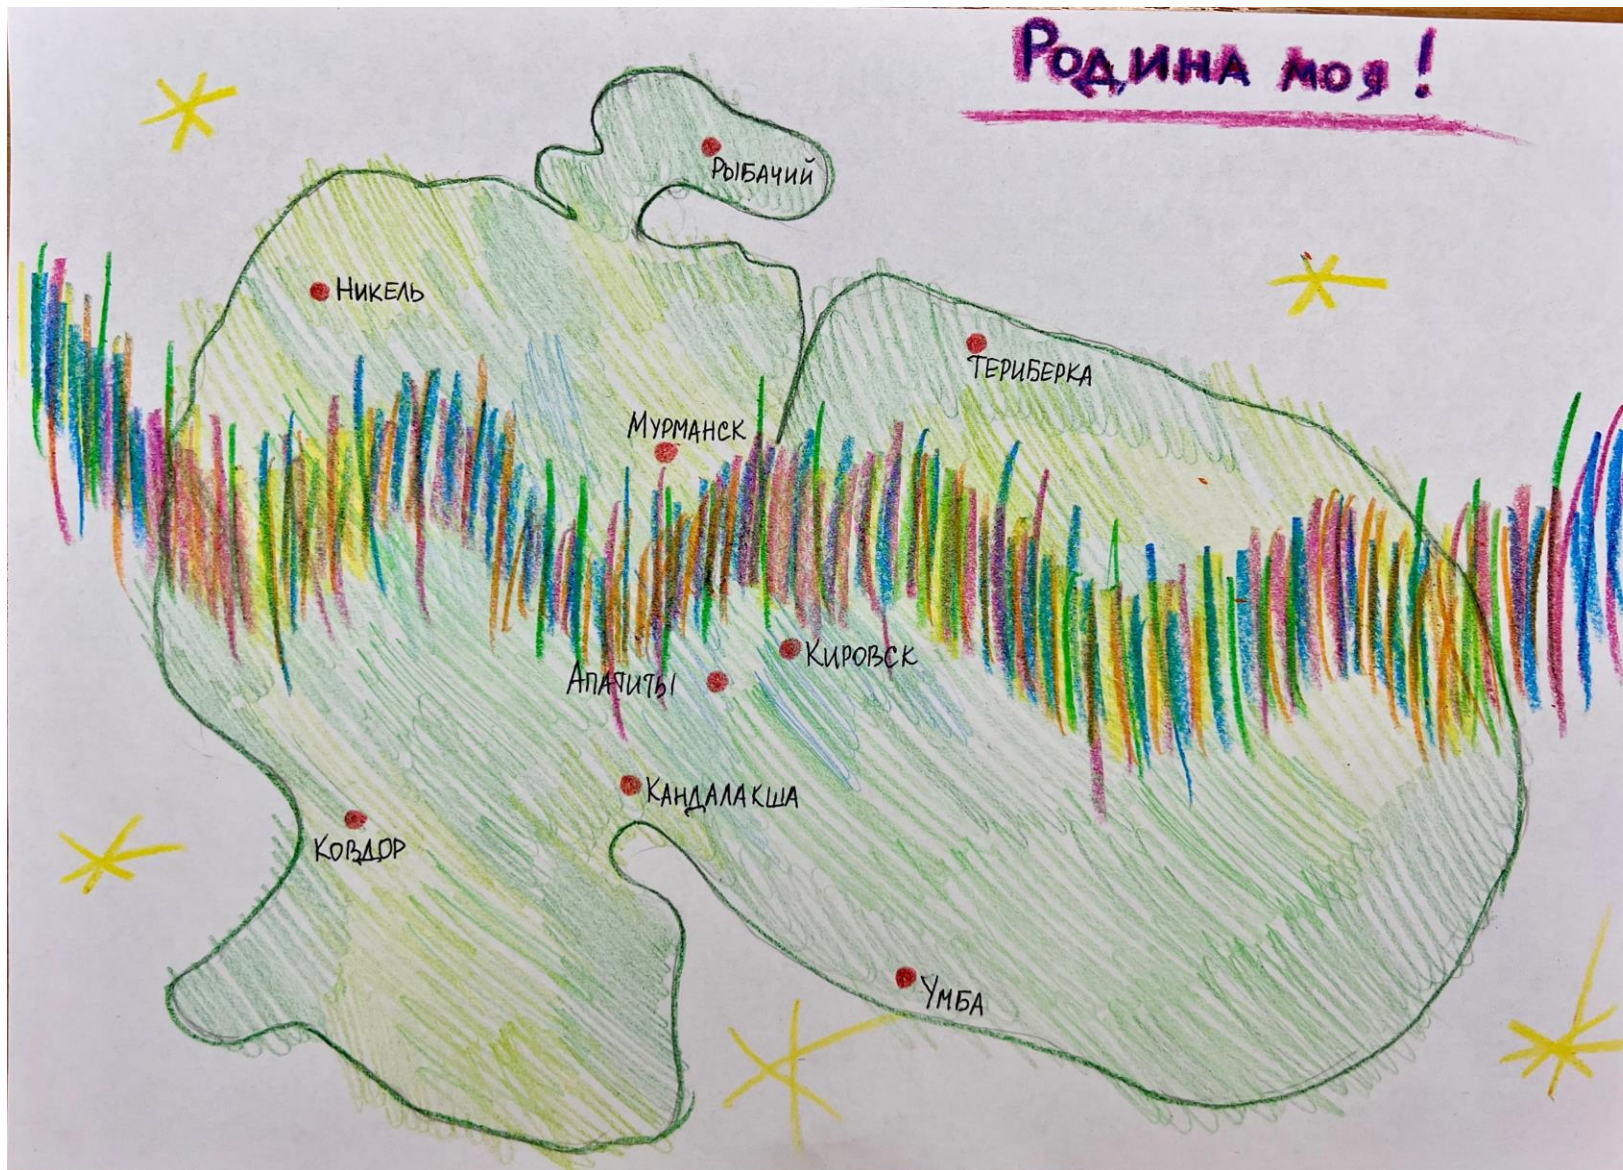 Родина моя!
Рыбачий
Никель
Териберка
Мурманск
Кировск
Апатиты
Кандалакша
Ковдор
Умба